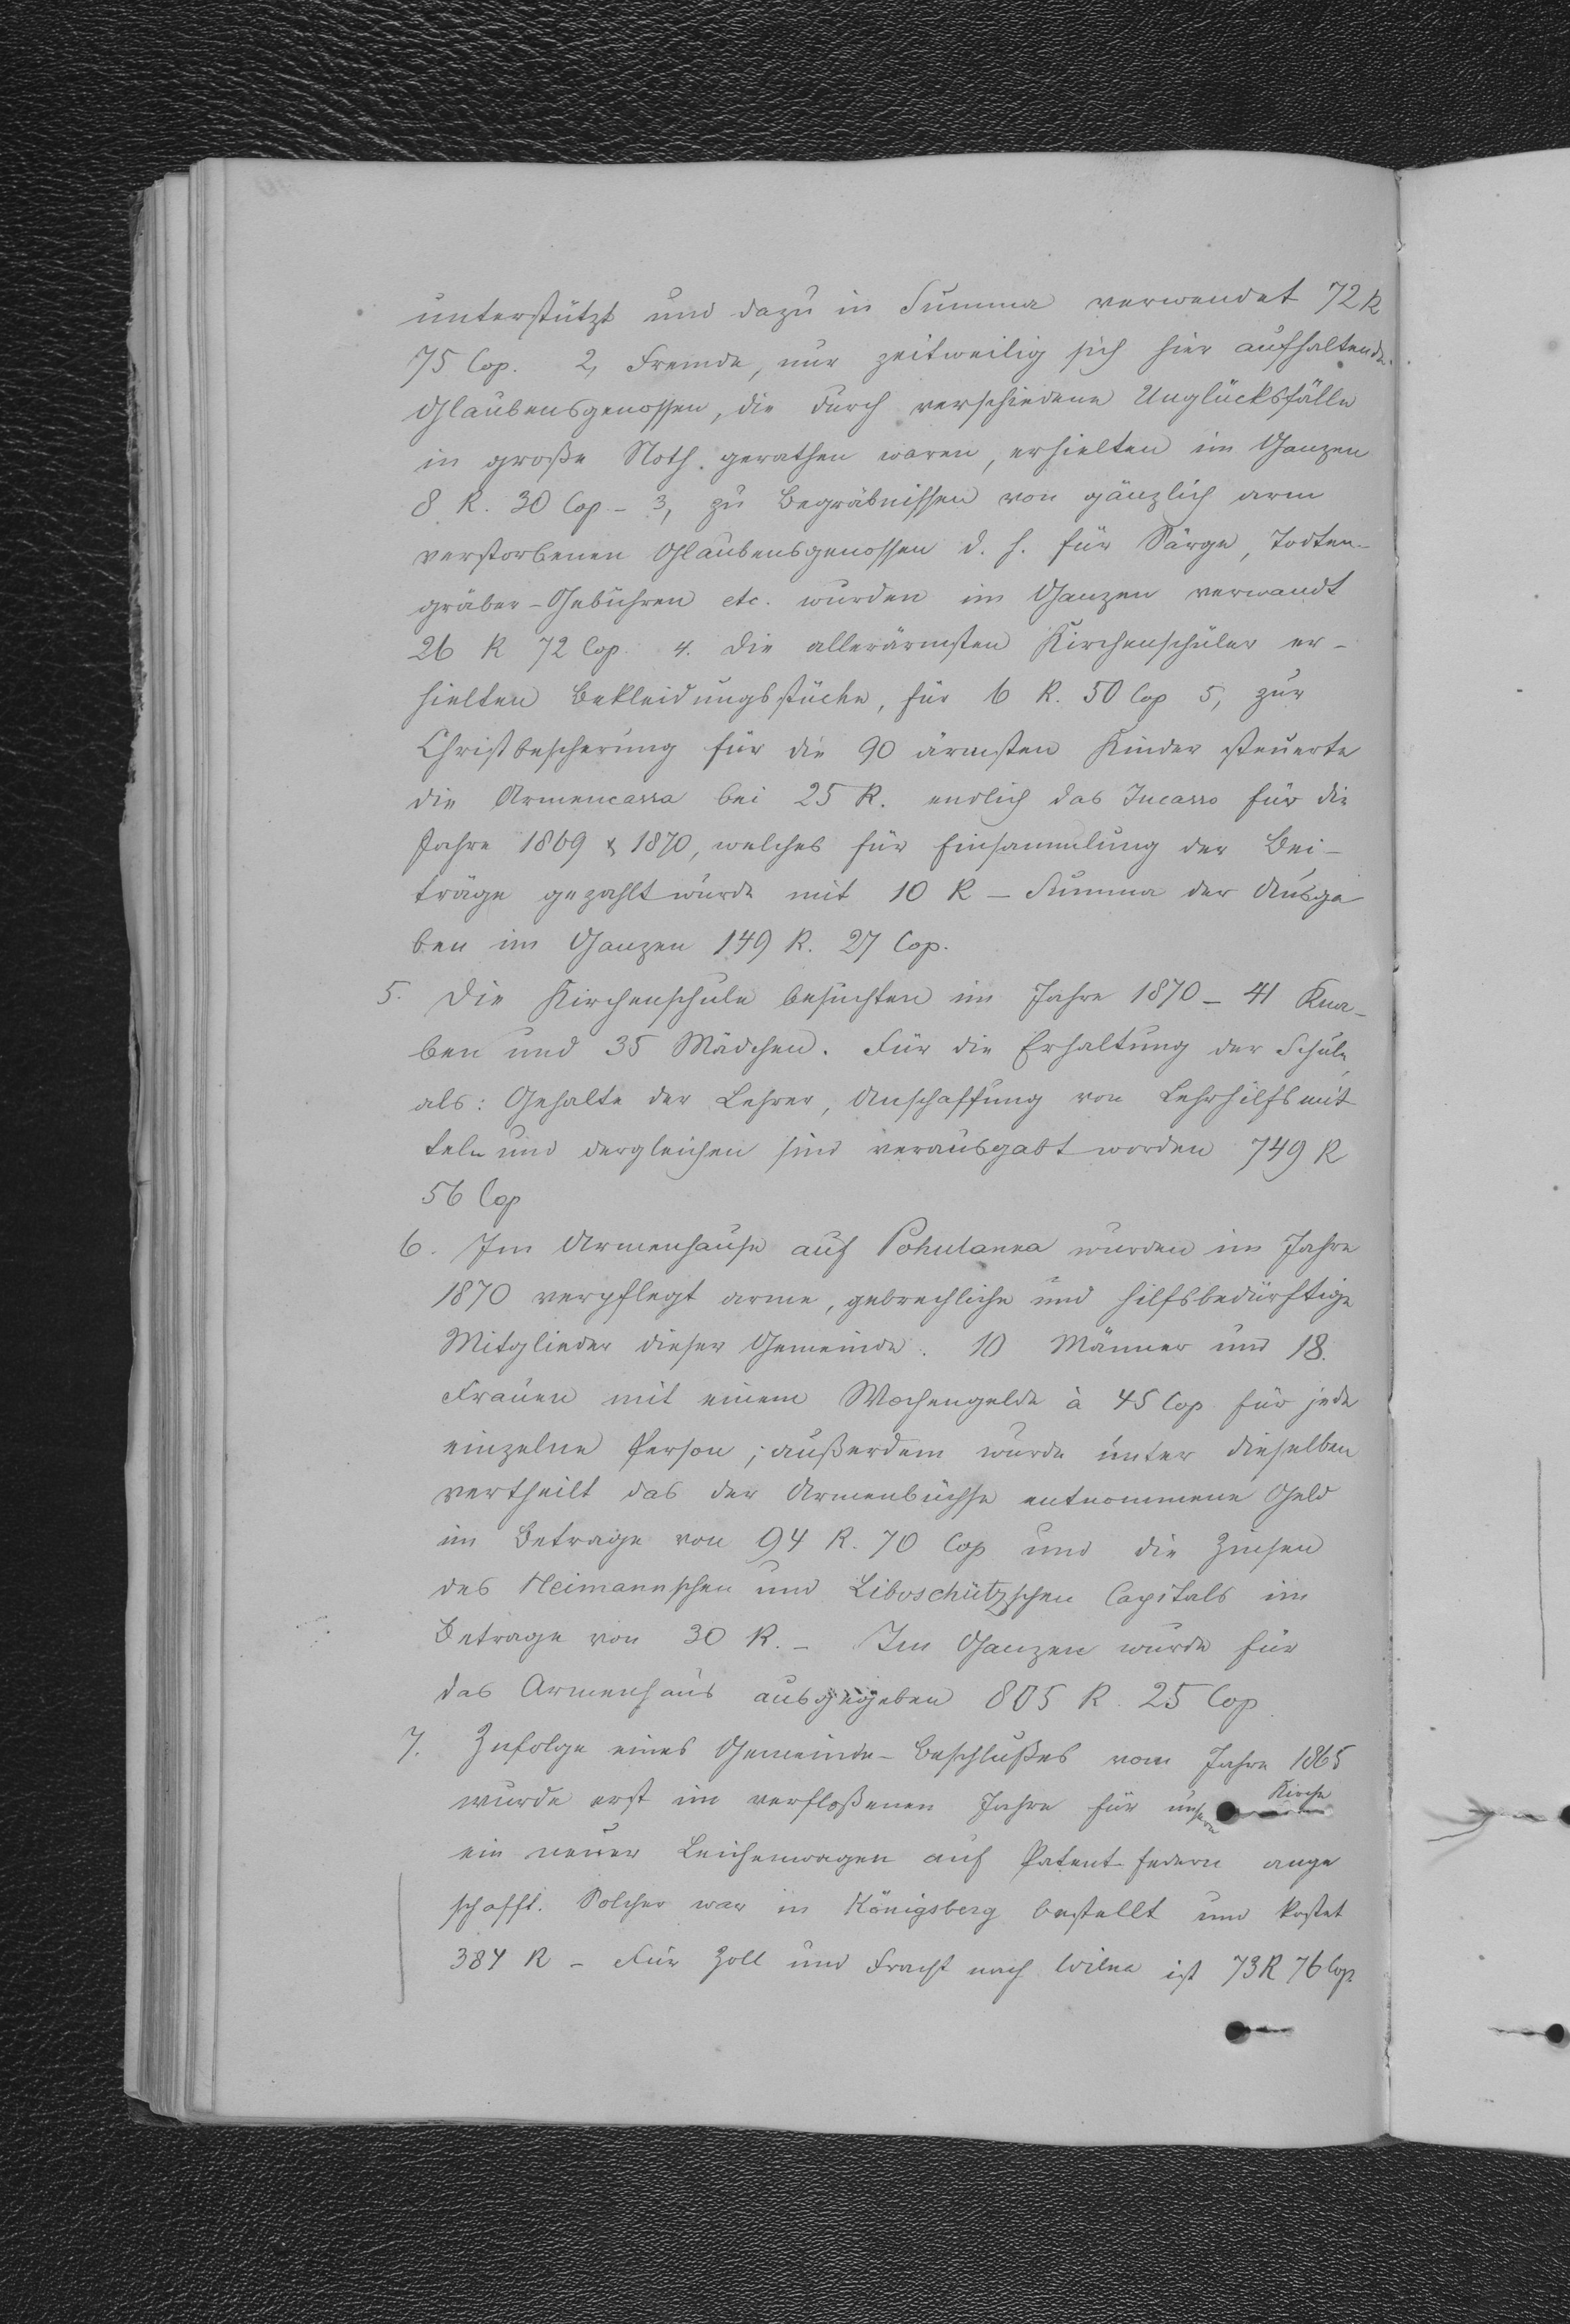 unterstützt und dazu in Summa verwendet 72 R
75 Cop. 2, Fremde, nur zeitweilig sich hier aufhaltende
Glaubensgenossen, die durch verschiedene Unglücksfälle
in große Noth gerathen waren, erhielten im Ganzen
8 R. 30 Cop - 3, zu Begräbnissen von gänzlich arm
verstorbenen Glaubensgenossen d. h. für Särge, Todten-
gräber-Gebühren etc. wurden im Ganzen verwandt
26 R 72 Cop. 4. Die allerärmsten Kirchenschüler er-
hielten Bekleidungsstücke, für 6 R. 50 Cop 5, zur
Christbescherung für die 90 ärmsten Kinder steuerte
die Armencassa bei 25 R. endlich das Incasso für die
Jahre 1869 & 1870, welches für Einsammlung der Bei-
träge gezahlt wurde mit 10 R - Summa der Ausga
ben im Ganzen 149 R. 27 Cop.
5. Die Kirchenschule besuchten im Jahre 1870 - 41 Kna-
ben und 35 Mädchen. Für die Erhaltung der Schule,
als: Gehalte der Lehrer, Anschaffung von Lehrhilfsmit
teln und dergleichen sind verausgabt worden 749 R
56 Cop
6. Im Armenhause auf Pohulanka wurden im Jahre
1870 verpflegt arme, gebrechliche und hilfsbedürftige
Mitglieder dieser Gemeinde. 10 Männer und 18.
Frauen mit einem Wochengelde à 45 Cop für jede
einzelne Person; außerdem wurde unter dieselben
vertheilt das der Armenbüchse entnommene Geld
im Betrage von 94 R. 70 Cop und die Zinsen
des Heimannschen und Liboschützschen Capitals im
Betrage von 30 R. - Im Ganzen wurde für
das Armenhaus ausgegeben 805 R. 25 Cop.
7. Zufolge eines Gemeinde-Beschlußes vom Jahre 1865
wurde erst im verfloßenen Jahre für unsere Kirche
ein neuer Leichenwagen auf Patent-Federn ange
schafft. Solcher war in Königsberg bestellt und kostet
384 R - Für Zoll und Fracht nach Wilna ist 73 R 76 Cop